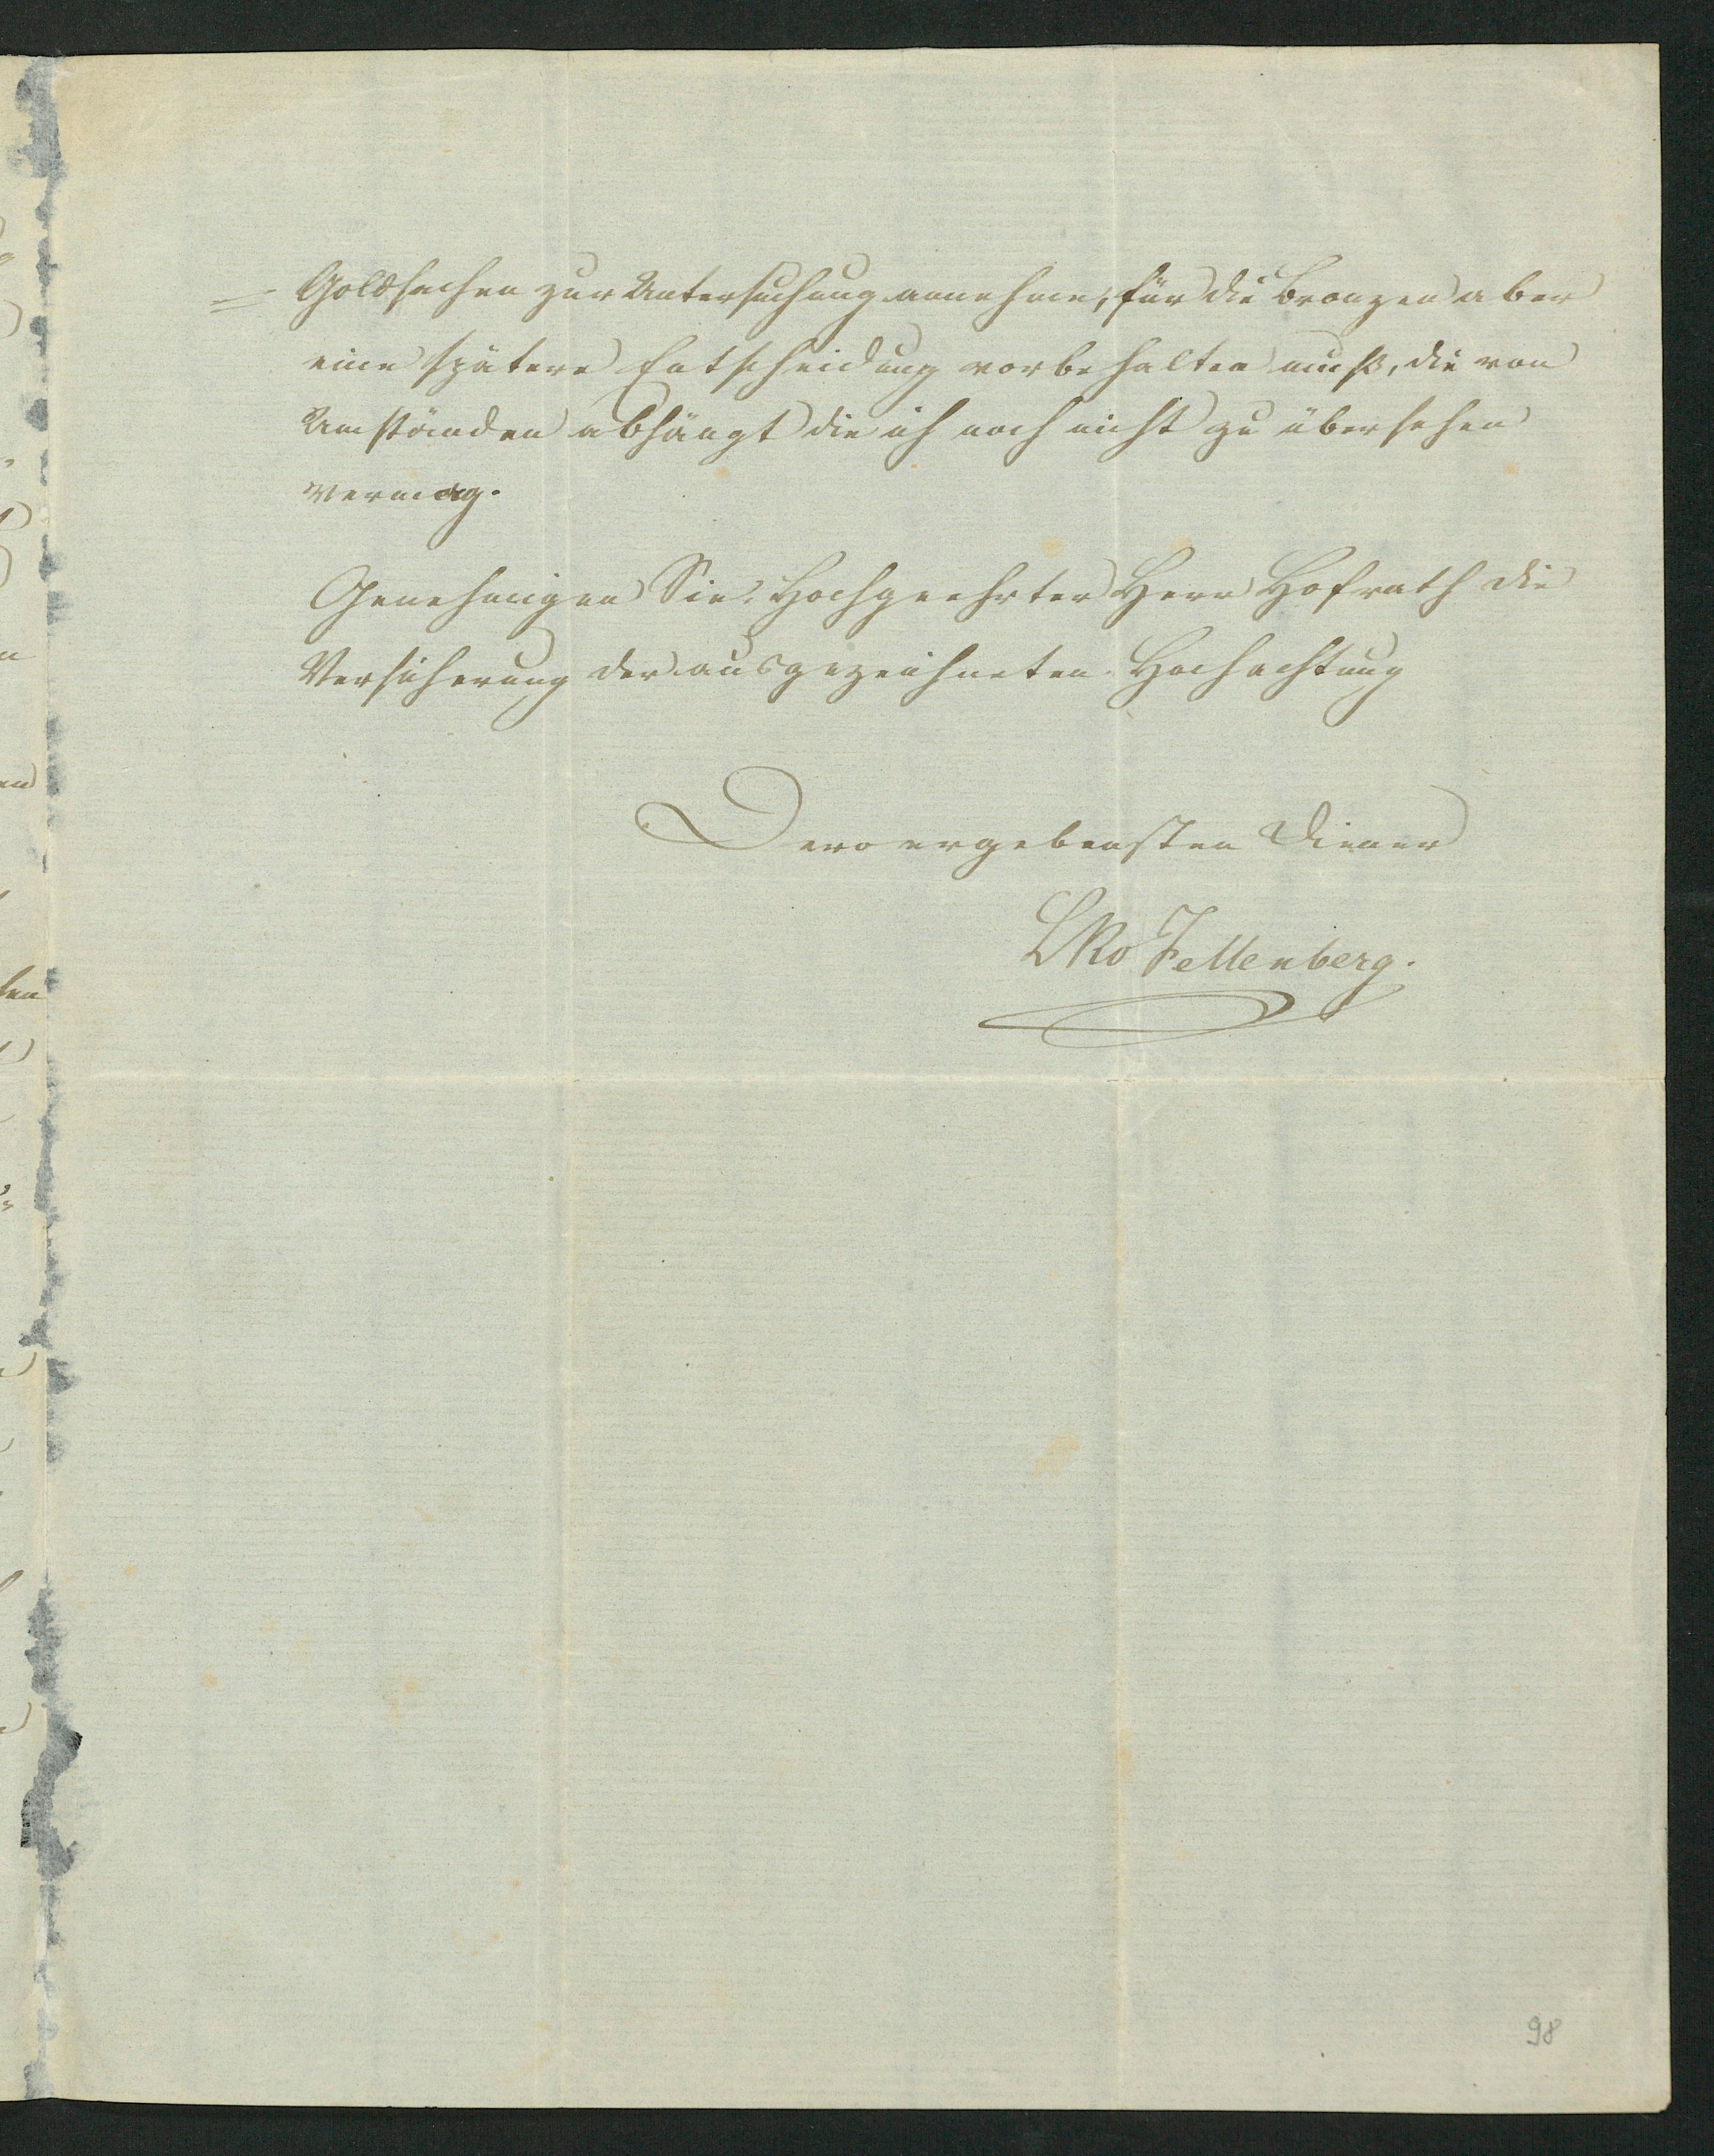 = Goldsachen zur Untersuchung annehme, für die Bronzen aber
eine spätere Entscheidung vorbehalten muß, die von
Umständen abhängt die ich noch nicht zu übersehen
vermag.
Genehmigen Sie, Hochgeehrter Herr Hofrath die
Versicherung der ausgezeichneten Hochachtung
Dero ergebensten Diener
LRv Fellenberg.
98